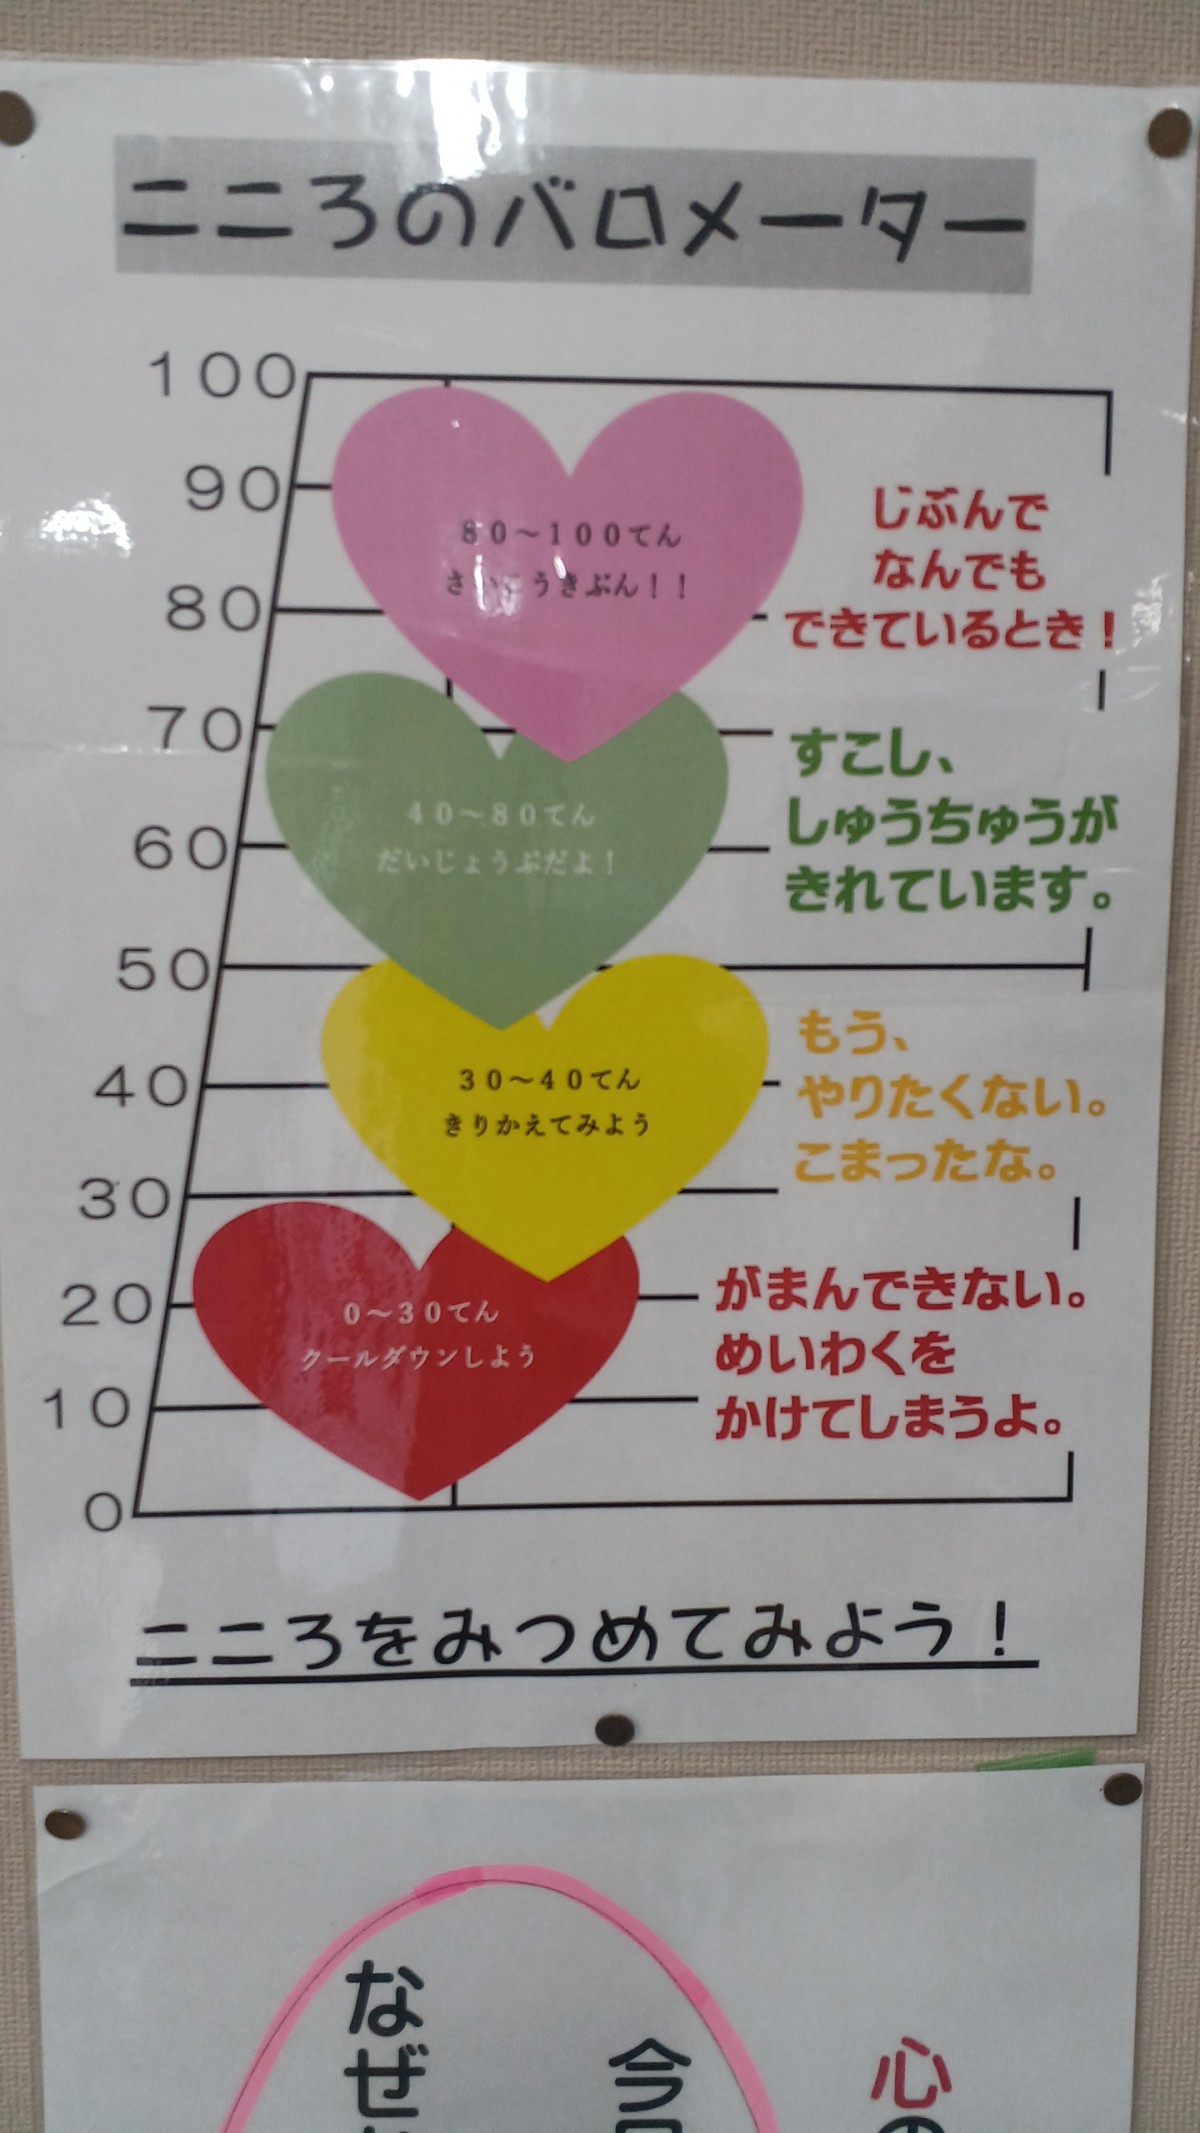 こころのバロメーター
100
90
80
70
60
50
40
30
20
10
0
80～100てん
さいこうきぶん！！
じぶんで
なんでも
できているとき！
40～80てん
だいじょうぶだよ！
すこし、
しゅうちゅうが
きれています。
30～40てん
きりかえてみよう
もう、
やりたくない。
こまったな。
0～30てん
クールダウンしよう
がまんできない。
めいわくを
かけてしまうよ。
こころをみつめてみよう！
心の
今
なぜ